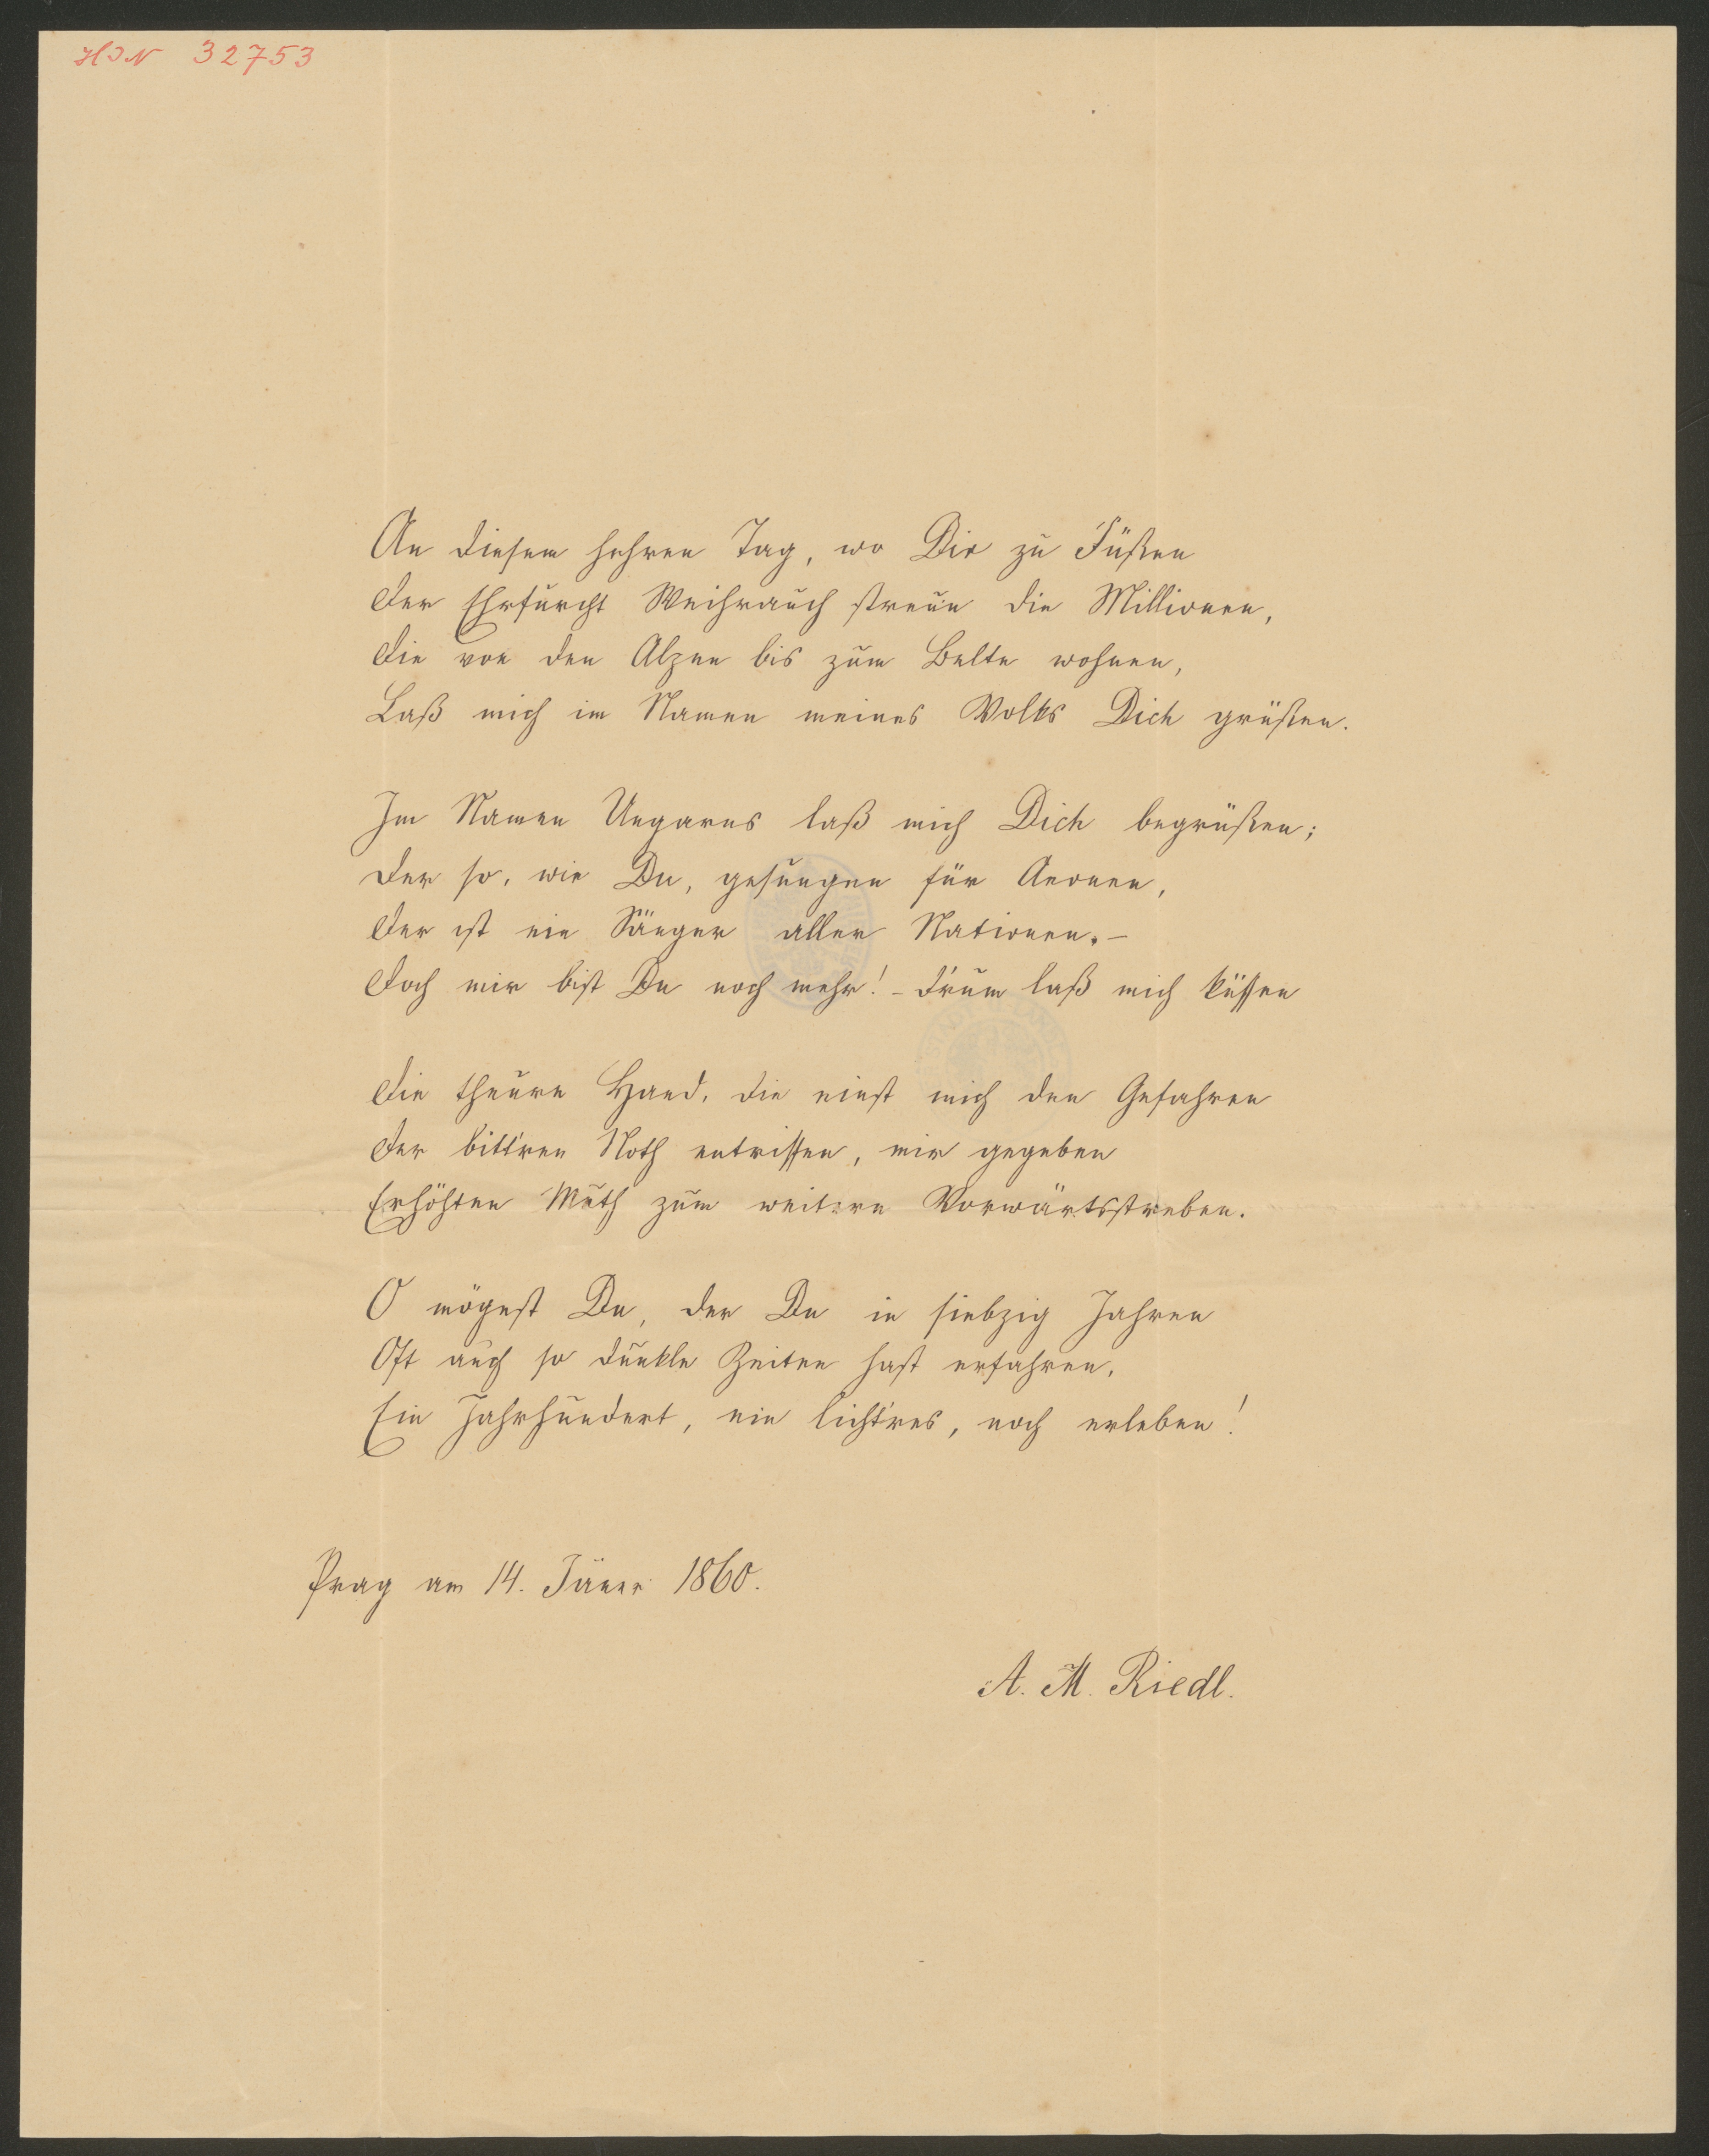 HIN 32753
An diesem hehren Tag, wo Dir zu Füßen
Der Ehrfurcht Weihrauch streu'n die Millionen,
Die von den Alpen bis zum Belte wohnen,
Laß mich im Namen meines Volks Dich grüßen.
Im Namen Ungarns laß mich Dich begrüßen;
Der so, wie Du, gesungen für Aeonen,
Der ist ein Sänger aller Nationen. –
Doch mir bist Du noch mehr! – D'rum laß mich küssen
Die theure Hand, die einst mich den Gefahren
Der bitt'ren Noth entrissen, mir gegeben
Erhöhten Muth zum weitern Vorwärtsstreben.
O mögest Du, der Du in siebzig Jahren
Oft auch so dunkle Zeiten hast erfahren,
Ein Jahrhundert, ein licht'res, noch erleben!
Prag am 14. Jäner 1860.
A. M. Riedl.